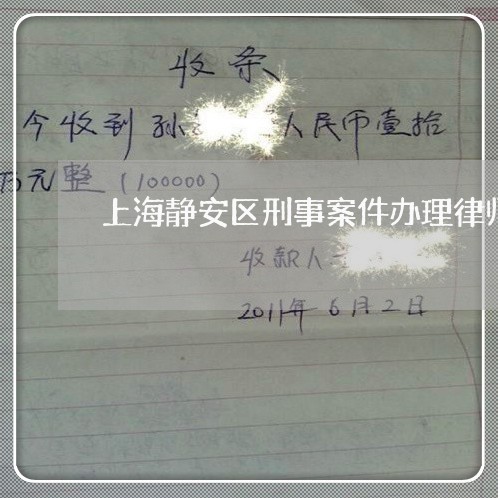 收条
今收到孙 人民币壹拾
万元整（100000）
上海静安区刑事案件办理律师
收款人
2011年6月2日